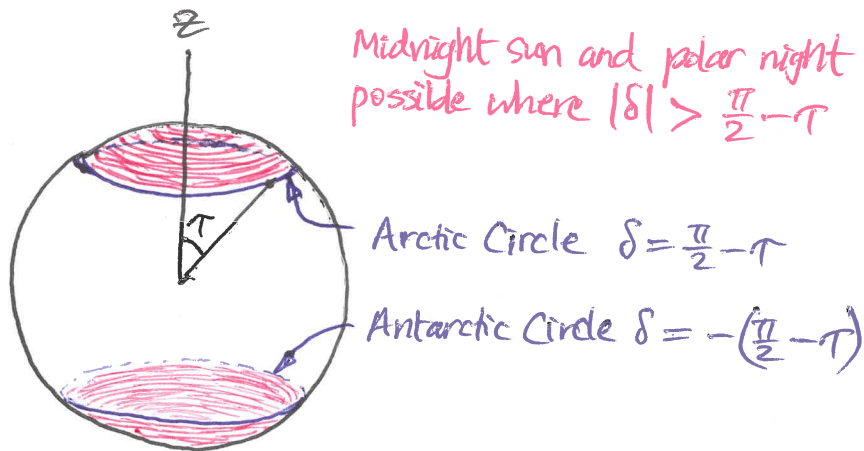 Z
Midnight sun and polar night
possible where |δ| > π/2 - τ
τ
Arctic Circle δ = π/2 - τ
Antarctic Circle δ = -(π/2 - τ)